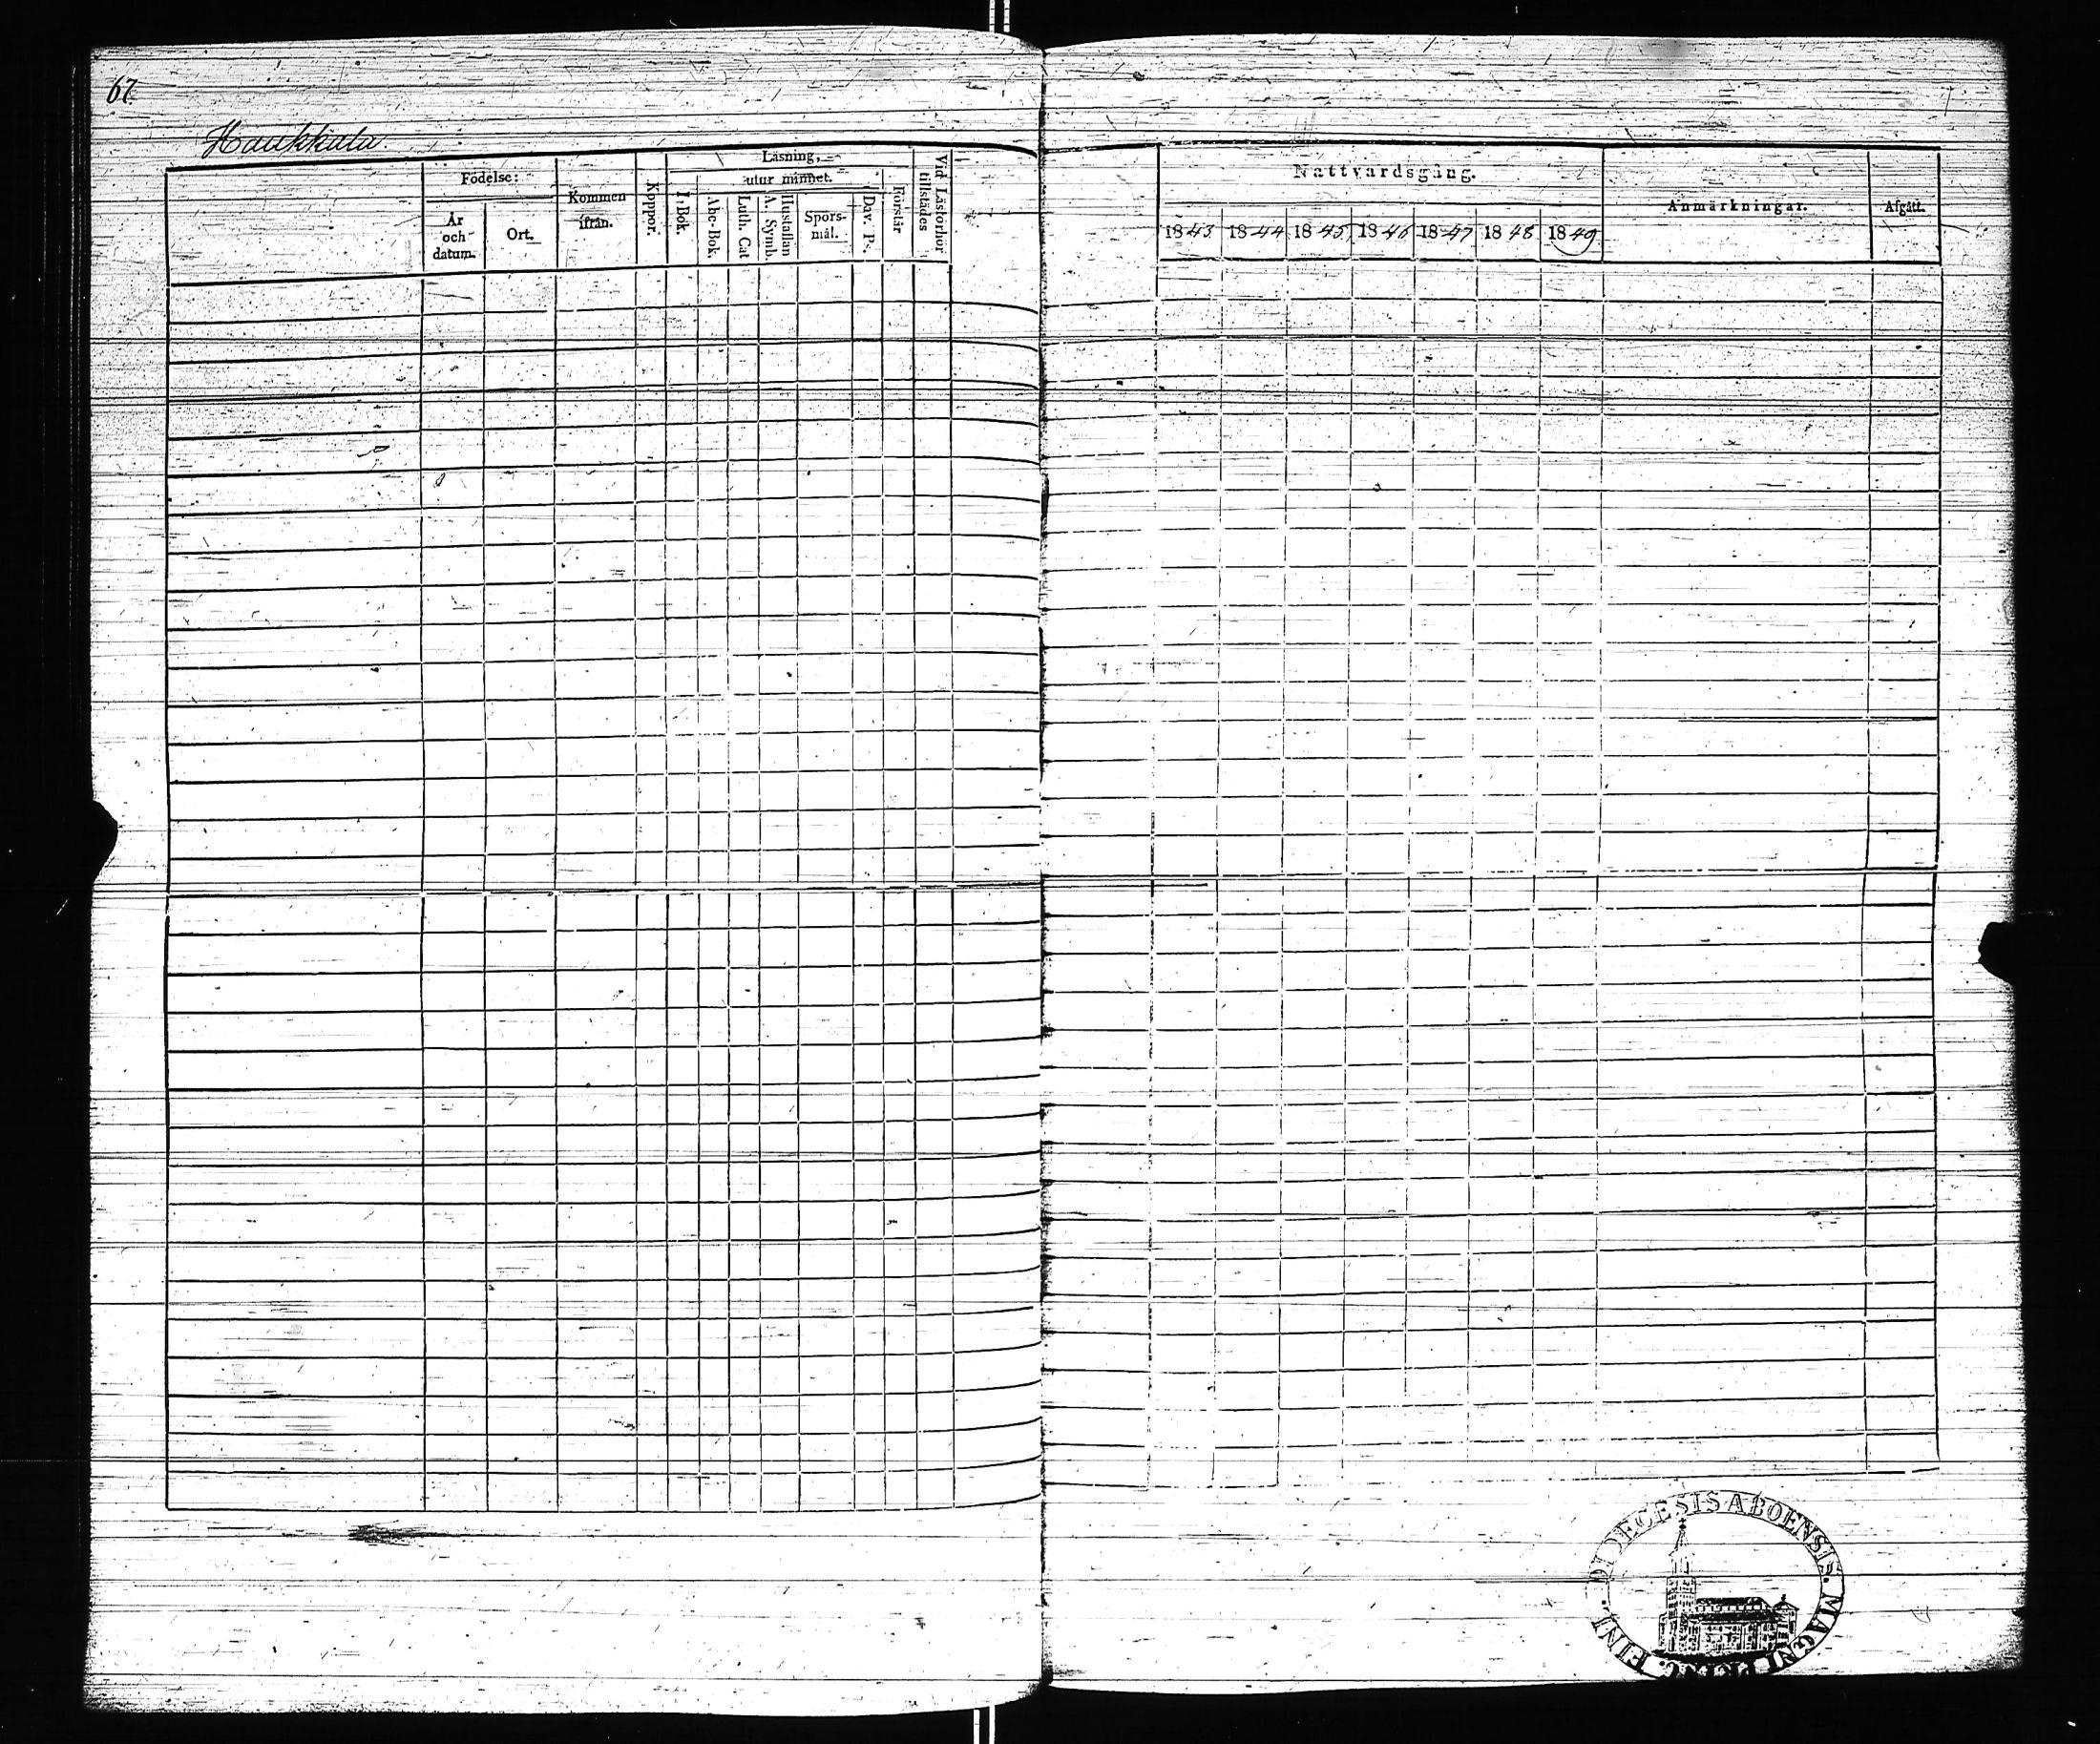 67.
Haukkala
Födelse:
År och datum.
Ort.
Kommen ifrån.
Koppor.
Läsning,
I. Bok.
utur minnet.
Abc-Bok.
Luth. Cat
Hustaflan A. Symb.
Spörsmål.
Dav. Ps.
Förstår
Vid Läsförhör tillstädes
Nattvardsgång.
1843 1844 1845 1846 1847 1848 1849
Anmärkningar.
Afgått.
DIOECESIS ABOENSIS. MAGNI PRINC. FINL.